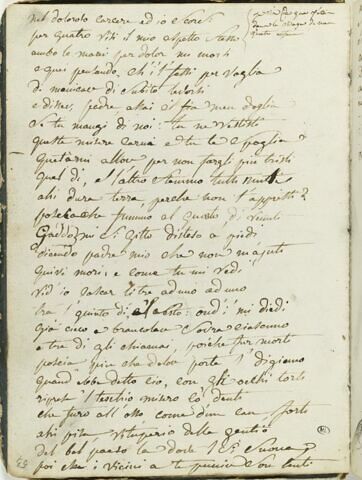 nel doloroso carcere ed io scorsi
per quattro visi il mio aspetto stesso
ambo le mani per dolor mi morsi
e quei pensando, ch'i'l fessi per voglia
di manicar di subito levorsi
e disser, padre assai ci fia men doglia
se tu mangi di noi: tu ne vestisti
queste misere carni e tu le spoglia
quetaimi allor per non fargli più tristi
quel dì, e l'altro stemmo tutti muti
ahi dura terra, perchè non t'apristi?
posciachè fummo al quarto di venuti
Gaddo mi si gittò disteso a piedi
dicendo padre mio che non m'ajuti
quivi morì: e come tu mi vedi
vid'io cascar li tre ad uno ad uno
tra 'l quinto dì e'l sesto: ond'i' mi diedi
già cieco a brancolar sovra ciascuno
e tre dì gli chiamai, poichè fur morti
poscia più che dolor potè l digiuno
quand ebbe detto ciò, con gli occhi torti
riprese l teschio misero co denti
che furo all'osso come d'un can forti
ahi pisa vituperio delle genti
del bel paese la dove l sì suona
poi che i vicini a te punir son lenti